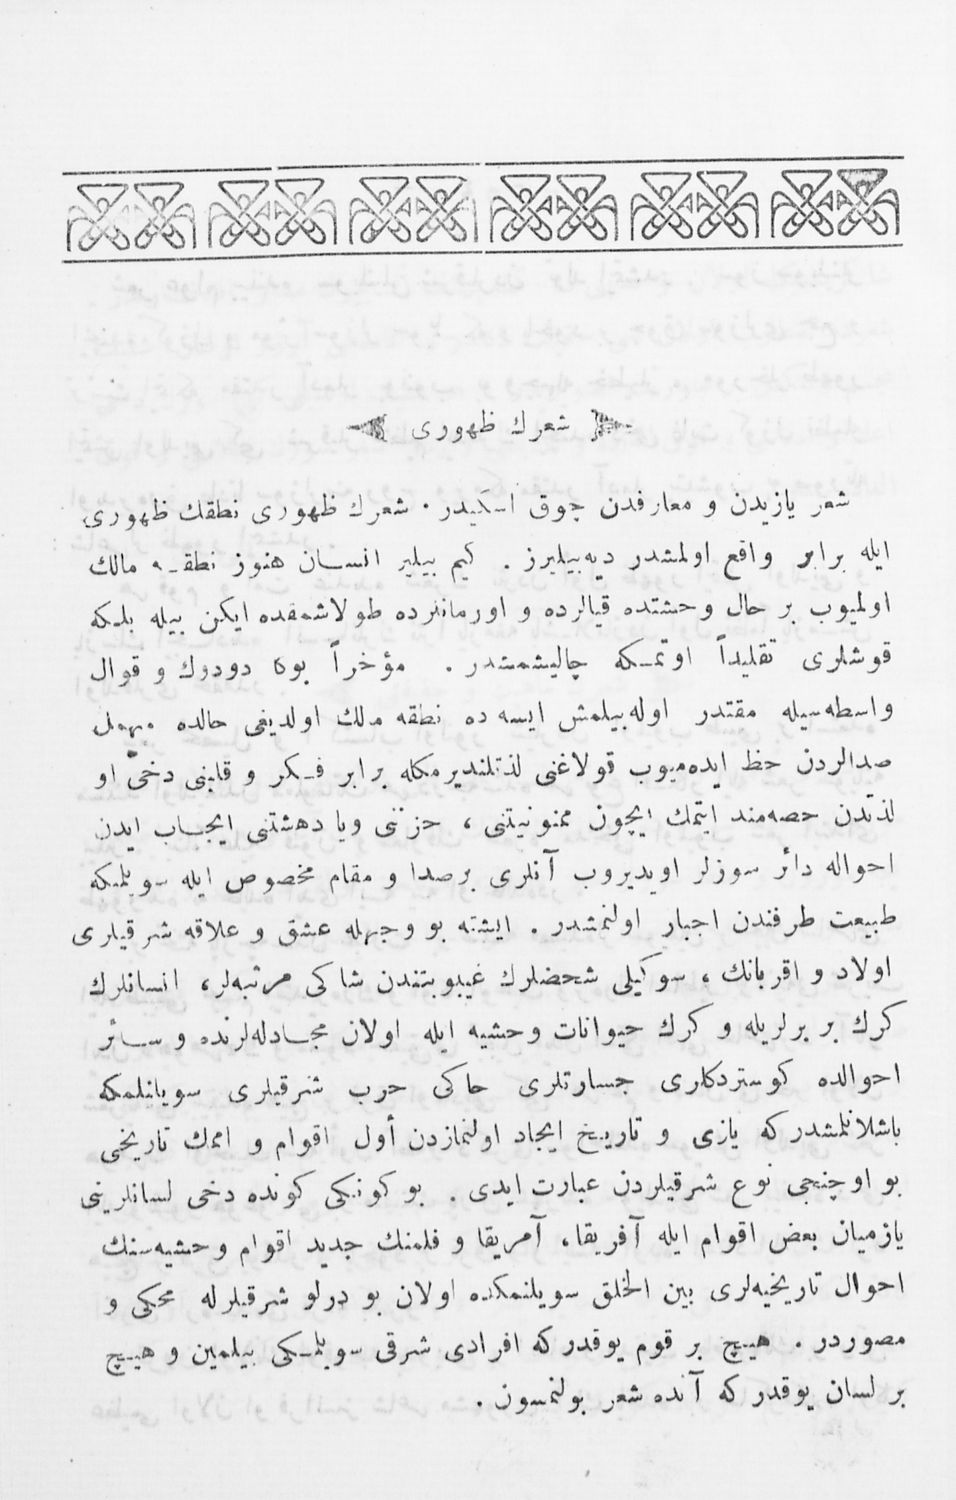 شعرك ظهوری
شعر یازیدن و معارفدن چوق اسكیدر . شعرك ظهوری نطقك ظهوری
ایله برابر واقع اولمشدر دیه بیلیرز . كیم بیلیر انسان هنوز نطقه مالك
اولمیوب بر حال وحشتده قیالرده و اورمانلرده طولاشمقده ایكن بیله بلكه
قوشلری تقلیداً اوتمكه چالیشمشدر . مؤخراً بوكا دودوك و قوال
واسطه‌سیله مقتدر اوله‌بیلمش ایسه ده نطقه مالك اولدیغی حالده مهمل
صدالردن حظ ایده‌میوب قولاغنی لذتلندیرمكله برابر فكر و قلبنی دخی او
لذتدن حصه‌مند ایتمك ایچون ممنونیتنی ، حزننی ویا دهشتنی ایجاب ایدن
احواله دائر سوزلر اویدیروب آنلری برصدا و مقام مخصوص ایله سویلمكه
طبیعت طرفندن اجبار اولنمشدر . ایشته بو وجهله عشق و علاقه شرقیلری
اولاد و اقربانك ، سوكیلی شخصلرك غیبوبتندن شاكی مرثیه‌لر ، انسانلرك
كرك بر برلریله و كرك حیوانات وحشیه ایله اولان مجادله‌لرنده و سائر
احوالده كوستردكلری جسارتلری حاكی حرب شرقیلری سویلنلمكه
باشلانلمشدر كه یازی و تاریخ ایجاد اولنمازدن أول اقوام و اممك تاریخی
بو اوچنجی نوع شرقیلردن عبارت ایدی . بو كونكی كونده دخی لسانلرینی
یازمیان بعض اقوام ایله آفریقا ، آمریقا و فلمنك جدید اقوام وحشیه‌سنك
احوال تاریخیه‌لری بین الخلق سویلنمكده اولان بو درلو شرقیلرله محكی و
مصوردر . هیچ بر قوم یوقدر كه افرادی شرقی سویلمكی بیلمین و هیچ
بر لسان یوقدر كه آنده شعر بولنمسون .